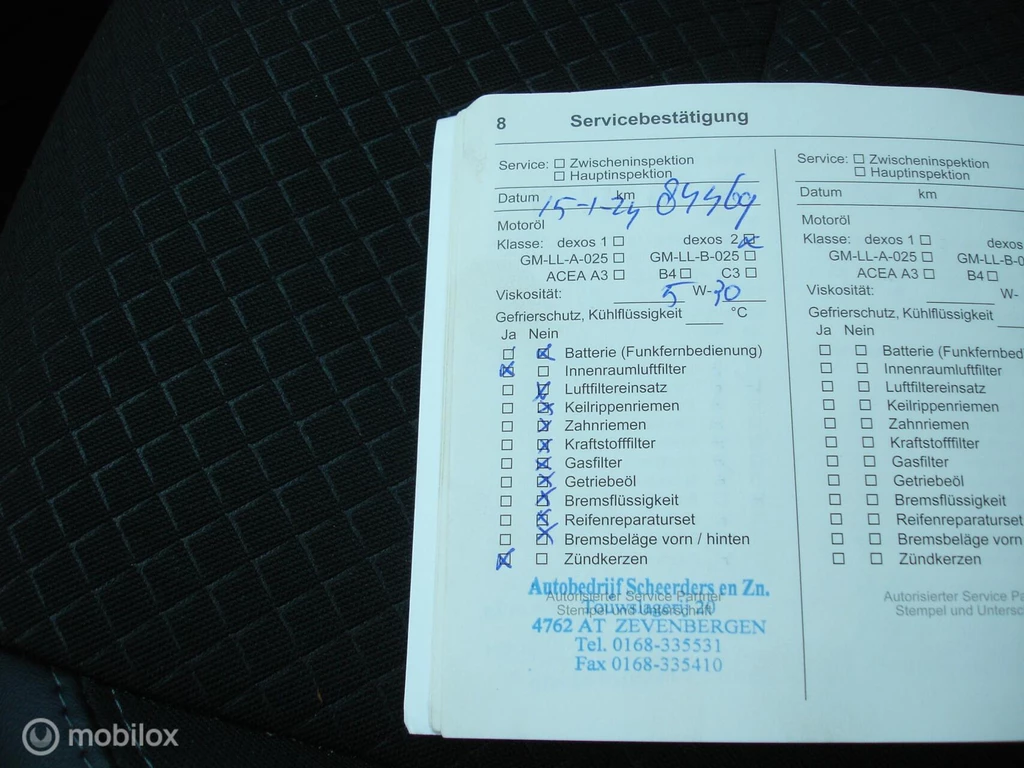 8 Servicebestätigung
Service: Zwischeninspektion
Hauptinspektion
Datum 15-1-24 km 84469
Motoröl
Klasse: dexos 1 dexos 2
GM-LL-A-025 GM-LL-B-025
ACEA A3 B4 C3
Viskosität: 5 W-30
Gefrierschutz, Kühlflüssigkeit °C
Ja Nein
Batterie (Funkfernbedienung)
Innenraumluftfilter
Luftfiltereinsatz
Keilrippenriemen
Zahnriemen
Kraftstofffilter
Gasfilter
Getriebeöl
Bremsflüssigkeit
Reifenreparaturset
Bremsbeläge vorn / hinten
Zündkerzen
Autobedrijf Scheerders en Zn.
Autorisierter Service Partner
Stempel und Unterschrift
4762 AT ZEVENBERGEN
Tel. 0168-335531
Fax 0168-335410
Service: Zwischeninspektion
Hauptinspektion
Datum km
Motoröl
Klasse: dexos 1 dexos
GM-LL-A-025 GM-LL-B-0
ACEA A3 B4
Viskosität: W-
Gefrierschutz, Kühlflüssigkeit
Ja Nein
Batterie (Funkfernbed
Innenraumluftfilter
Luftfiltereinsatz
Keilrippenriemen
Zahnriemen
Kraftstofffilter
Gasfilter
Getriebeöl
Bremsflüssigkeit
Reifenreparaturset
Bremsbeläge vorn
Zündkerzen
Autorisierter Service Pa
Stempel und Untersc
mobilox